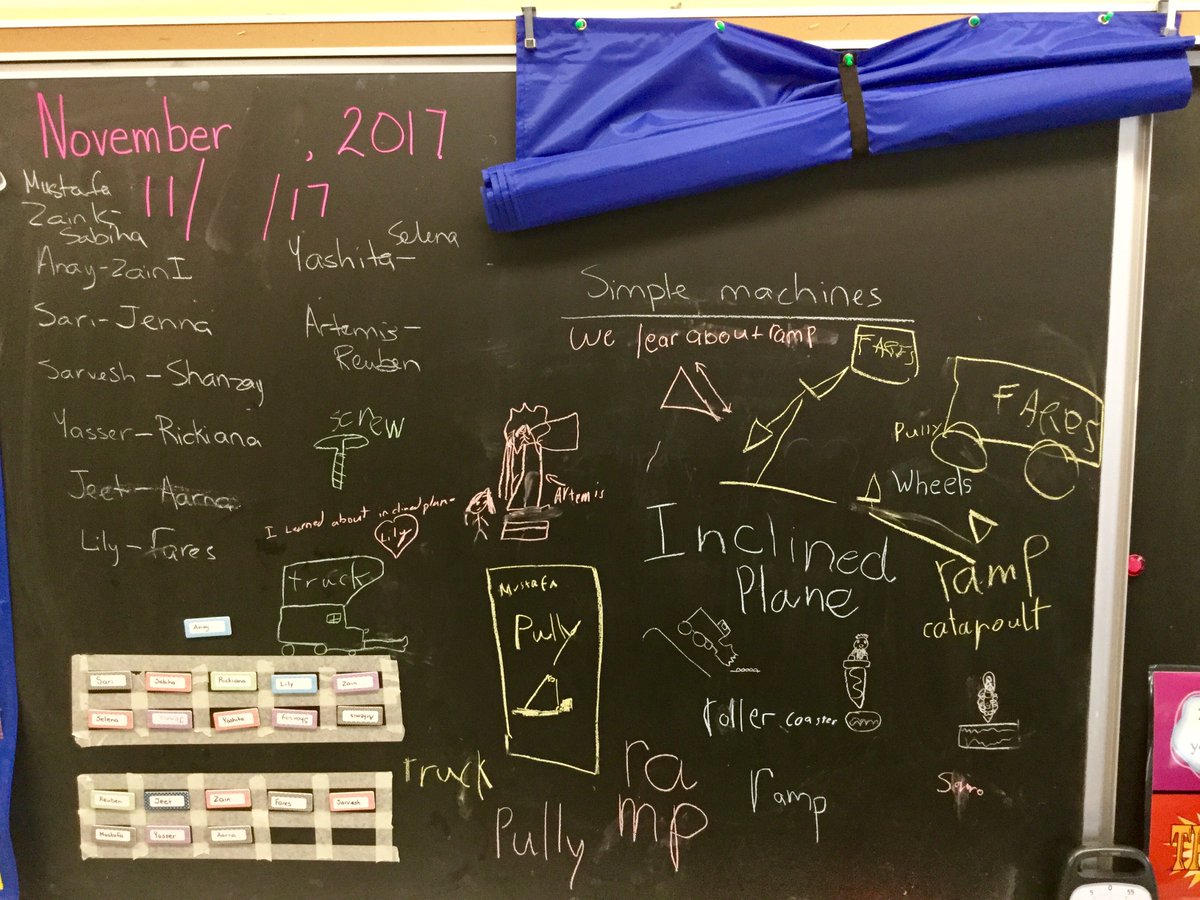 November , 2017
11/ /17
Mustafa
Zain K-
Sabiha
Anay-Zain I
Sari-Jenna
Sarvesh-Shanzay
Yasser-Rickiana
Jeet-Aarna
Lily-Fares
Yashita-
Selena
Artemis-
Reuben
Simple machines
We lear about ramp
FARES
FARES
Pully
Wheels
screw
Artemis
I Learned about inclined plan-
Lily
truck
Inclined
Plane
ramp
catapoult
Mustafa
Pully
roller coaster
truck
Pully
ra
mp
ramp
Anay
Sari
Sabiha
Rickiana
Lily
Zain
Selena
Yashita
Reuben
Jeet
Zain
Fares
Sarvesh
Mustafa
Yasser
Aarna